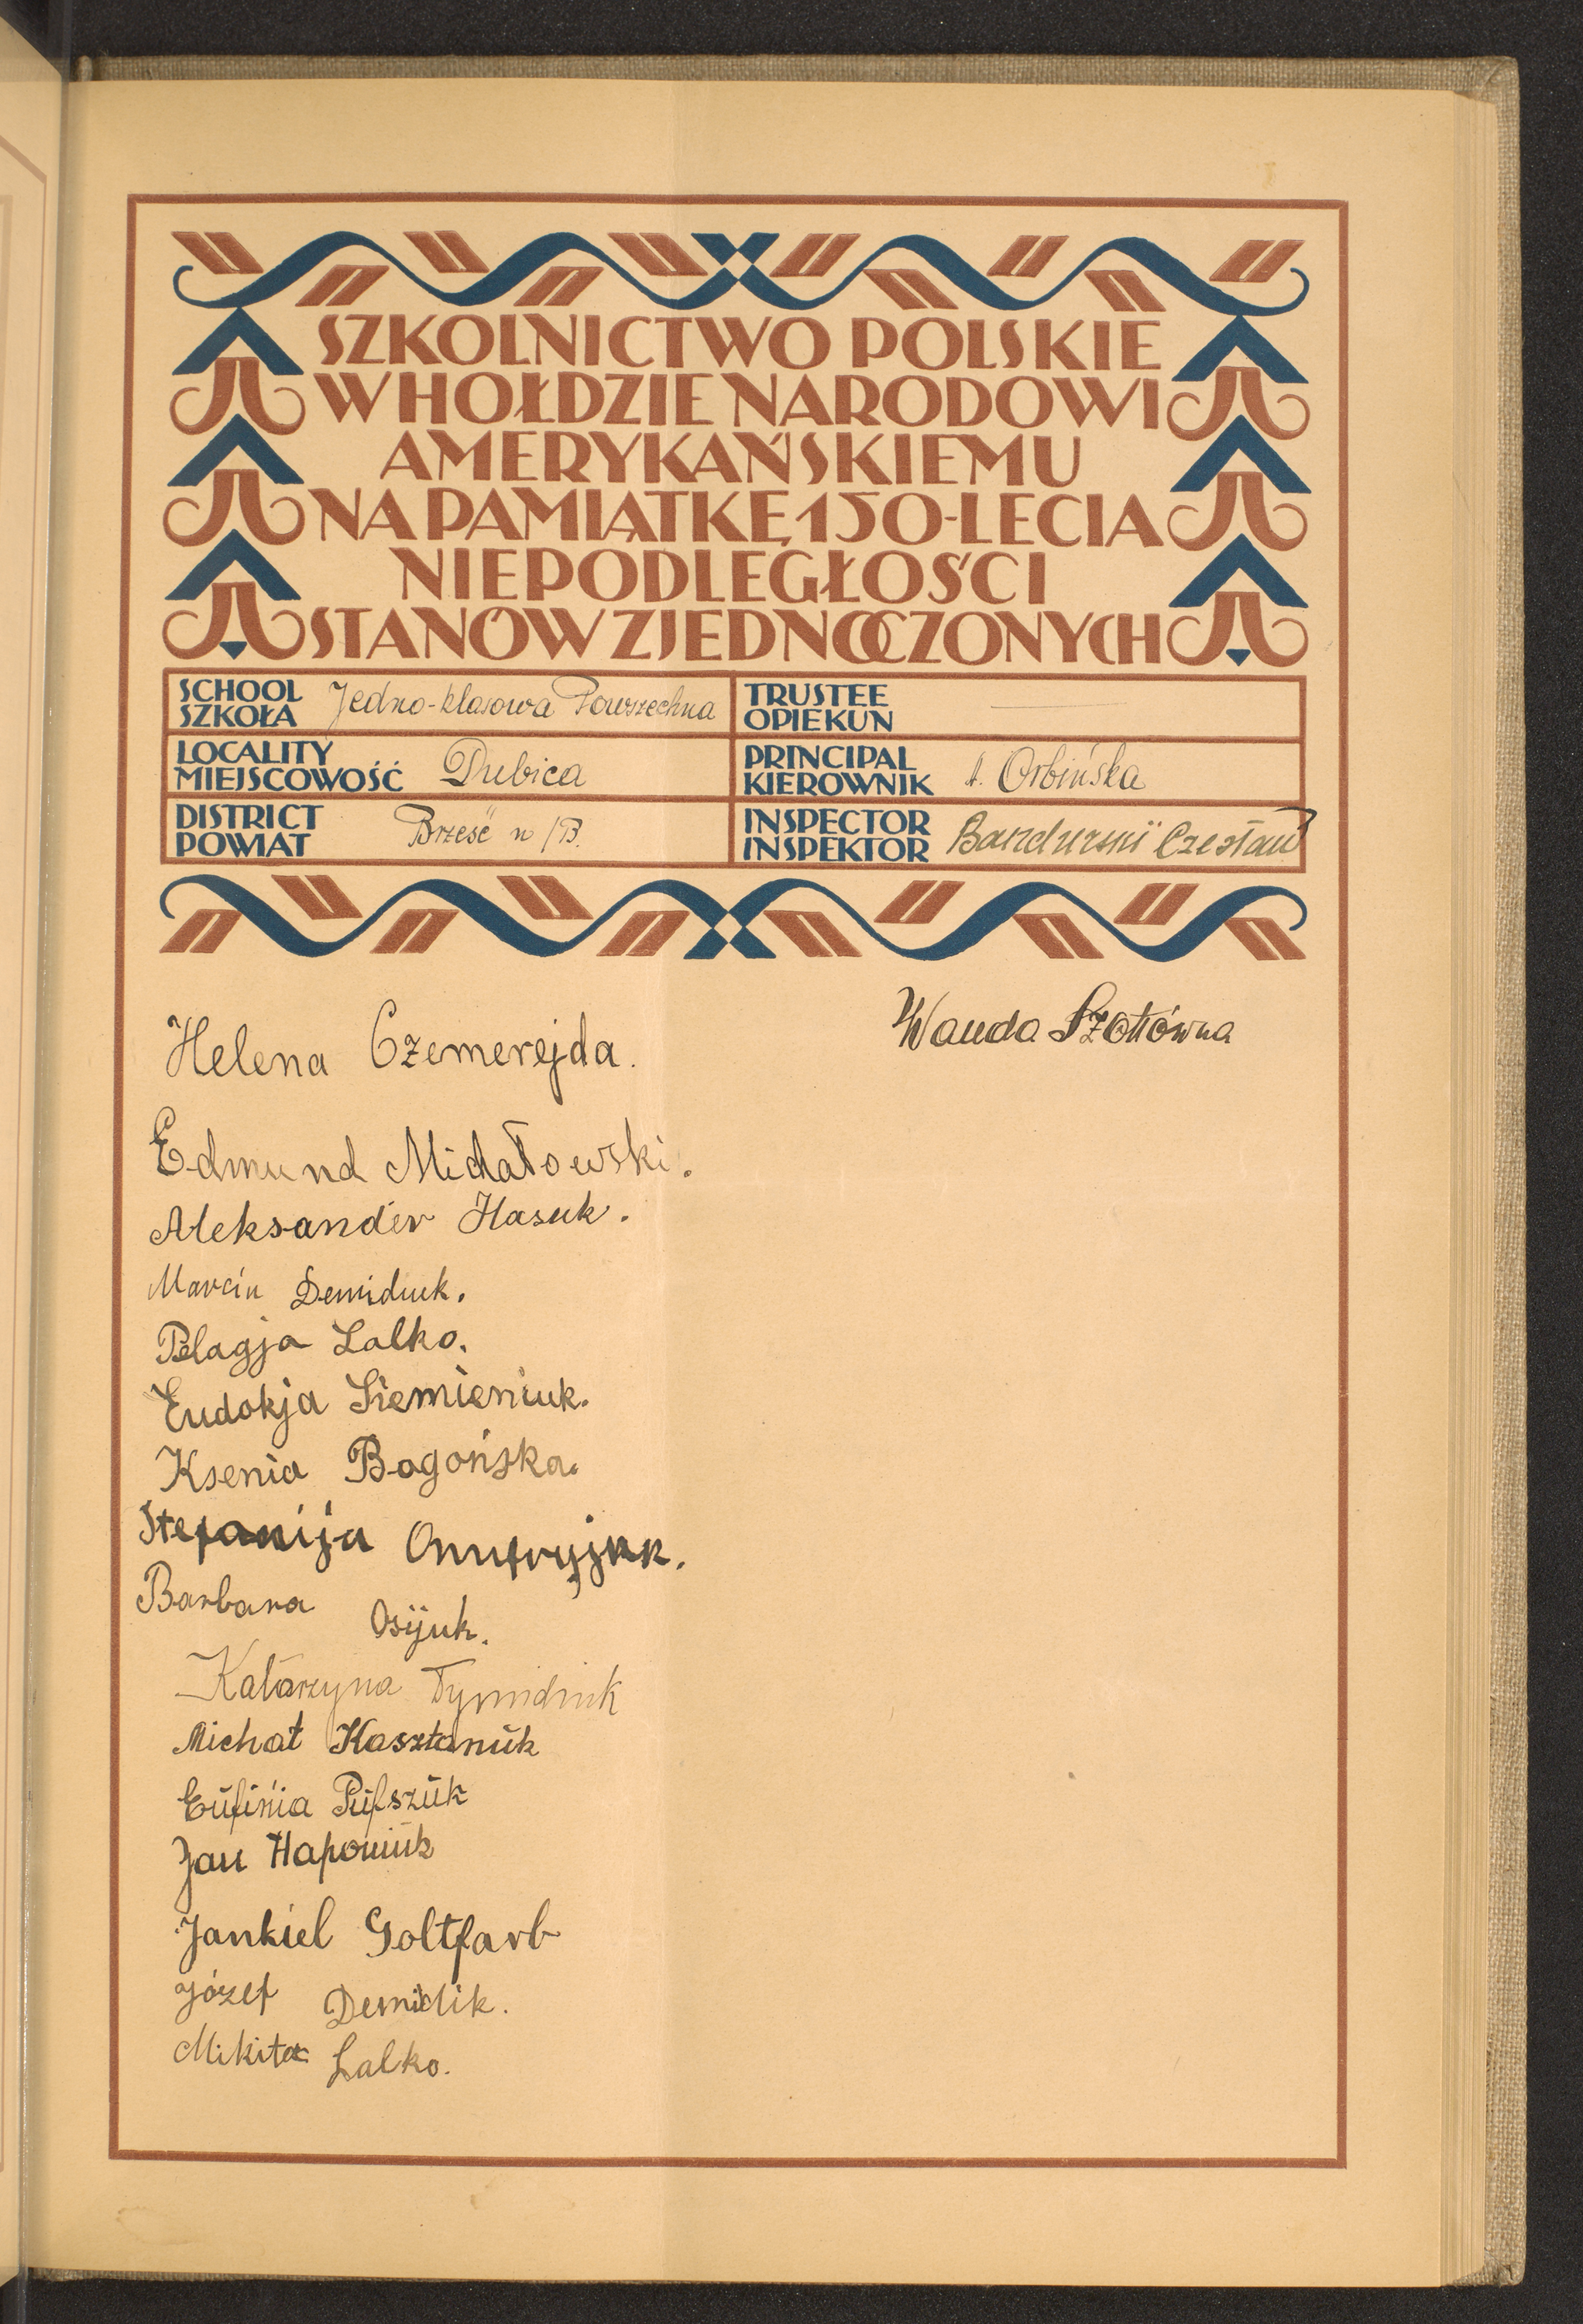 SZKOLNICTWO POLSKIE
W HOŁDZIE NARODOWI
AMERYKAŃSKIEMU
NA PAMIĄTKĘ 150-LECIA
NIEPODLEGŁOŚCI
STANÓW ZJEDNOCZONYCH
SCHOOL
SZKOŁA Jedno-klasowa Powszechna
TRUSTEE
OPIEKUN
LOCALITY
MIEJSCOWOŚĆ Dubica
PRINCIPAL
KIEROWNIK A. Orbińska
DISTRICT
POWIAT Brześć n/B.
INSPECTOR
INSPEKTOR Czesław
Helena Czemerejda.
Edmund Michałowski.
Aleksander Hasuk.
Marcin Demiduk.
Pelagja Lalko.
Eudokja Siemieniuk.
Ksenia Bogońska.
Stefanija Onufryjuk.
Barbara Osijuk.
Katarzyna Tymidiuk
Michał Kasztanuk
Eufinia
Jan Haponiuk
Jankiel Goltfarb
Józef Demidik.
Mikita Lalko.
Wanda